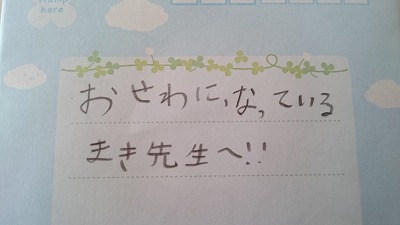 stamp
here
おせわに、なっている
まき先生へ!!